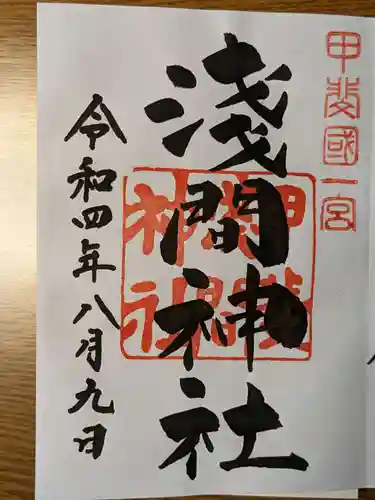 甲斐國一宮
淺間神社
甲斐
淺間
神社
令和四年八月九日